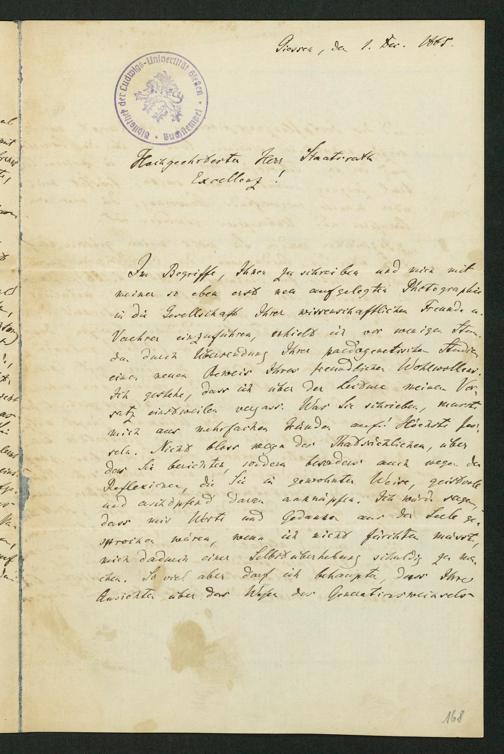 Giessen, den 1. Dec. 1865.
Bibliothek der Ludwigs-Universität Giessen
Hochgeehrtester Herr Staatsrath
Excellenz!
Im Begriffe, Ihnen zu schreiben und mich mit
meiner so eben erst neu aufgelegten Photographie
in die Gesellschaft Ihrer wissenschaftlichen Freunde u.
Verehrer einzuführen, erhielt ich vor wenigen Stun-
den durch Uebersendung Ihrer paedogenetischen Studien
einen neuen Beweis Ihres freundlichen Wohlwollens.
Ich gestehe, dass ich über der Lectüre meinen Vor-
satz einstweilen vergass. Was Sie schrieben, musste
mich aus mehrfachen Gründen auf's Höchste fes-
seln. Nicht bloss wegen des Thatsächlichen, über
das Sie berichten, sondern besonders auch wegen der
Reflexionen, die Sie in gewohnter Weise, geistvoll
und erschöpfend daran anknüpfen. Ich würde sagen,
dass mir Worte und Gedanken aus der Seele ge-
sprochen wären, wenn ich nicht fürchten müsste,
mich dadurch einer Selbstüberhebung schuldig zu ma-
chen. So viel aber darf ich behaupten, dass Ihre
Ansichten über das Wesen des Generationswechsels
168